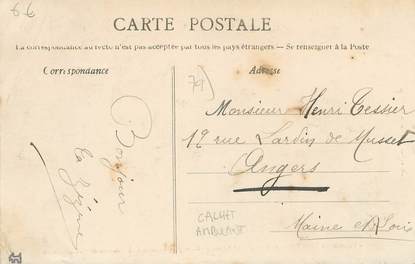 66
CARTE POSTALE
La correspondance au recto n'est pas acceptée par tous les pays étrangers — Se renseigner à la Poste
Correspondance
Adresse
74)
Bonjour
Monsieur Henri Tessier
19 rue Lardin de Musset
Angers
Maine et Loire
CACHET
AMBULANT